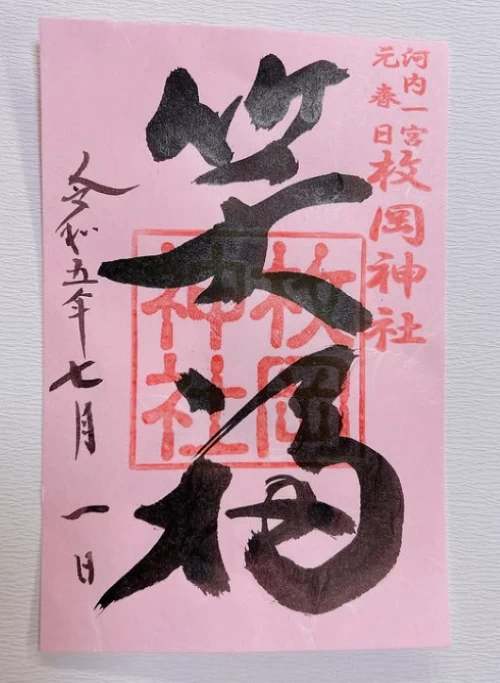 河内一宮
元春日
枚岡神社
笑福
枚岡
神社
令和五年七月一日